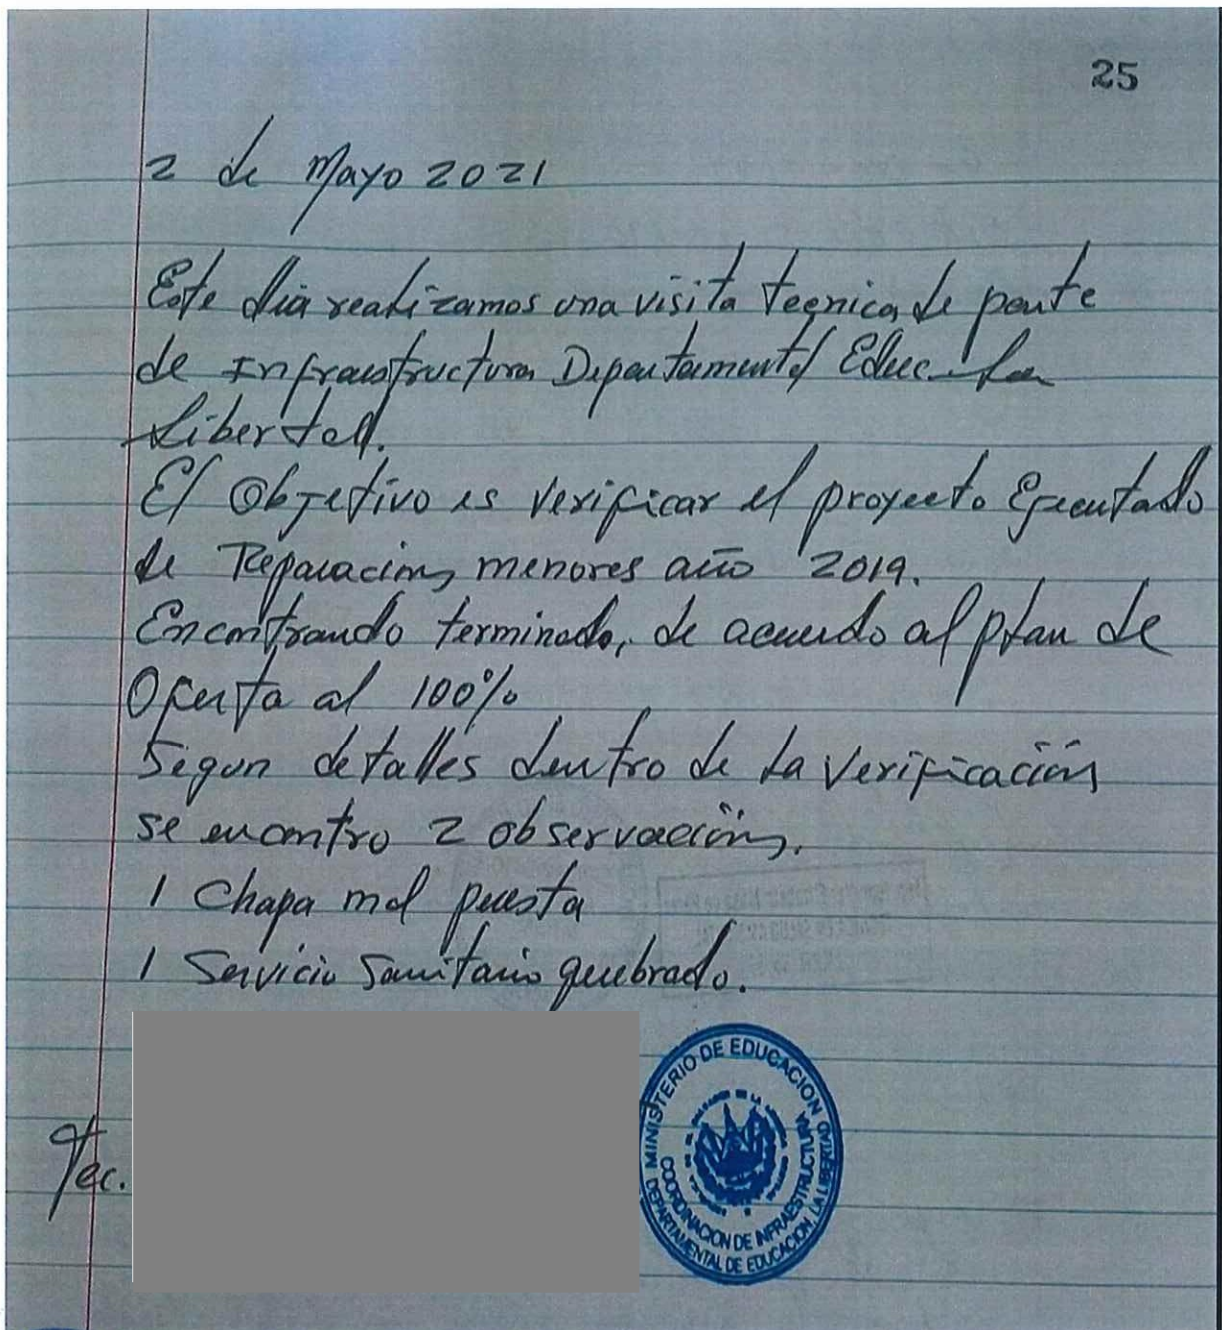 25
2 de Mayo 2021
Este dia realizamos una visita tecnica de parte
de Infraestructura Departamental Educ. La
Libertad.
El Objetivo es verificar el proyecto Ejecutado
de Reparaciones menores año 2019.
Encontrando terminado, de acuerdo al plan de
Oferta al 100%
Segun detalles dentro de la Verificación
se encontro 2 observación.
1 Chapa mal puesta
1 Servicio Sanitario quebrado.
Tec.
MINISTERIO DE EDUCACION
COORDINACION DE INFRAESTRUCTURA
DEPARTAMENTAL DE EDUCACION, LA LIBERTAD